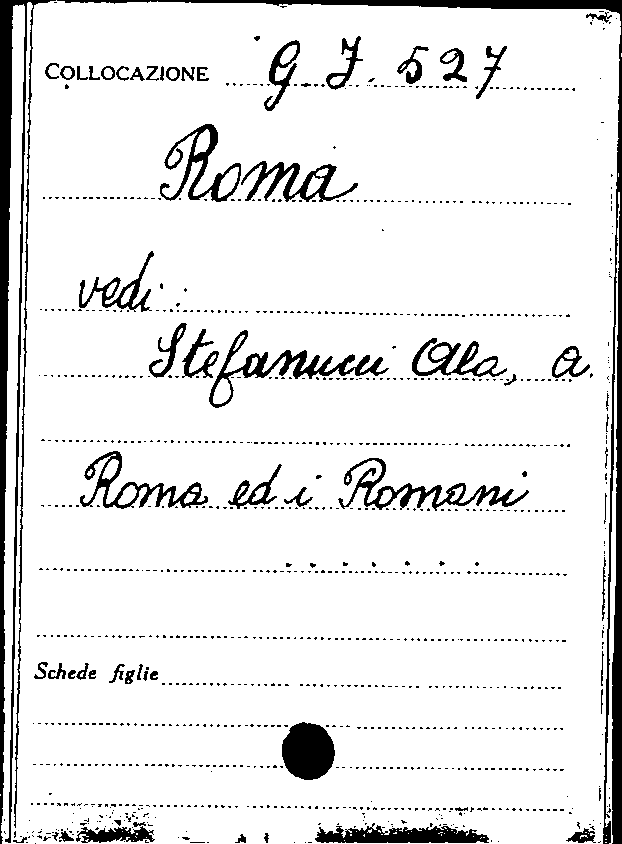 COLLOCAZIONE G. J. 527
Roma
vedi:
Stefanucci Ala, A.
Roma ed i Romani
. . . . . . .
Schede figlie